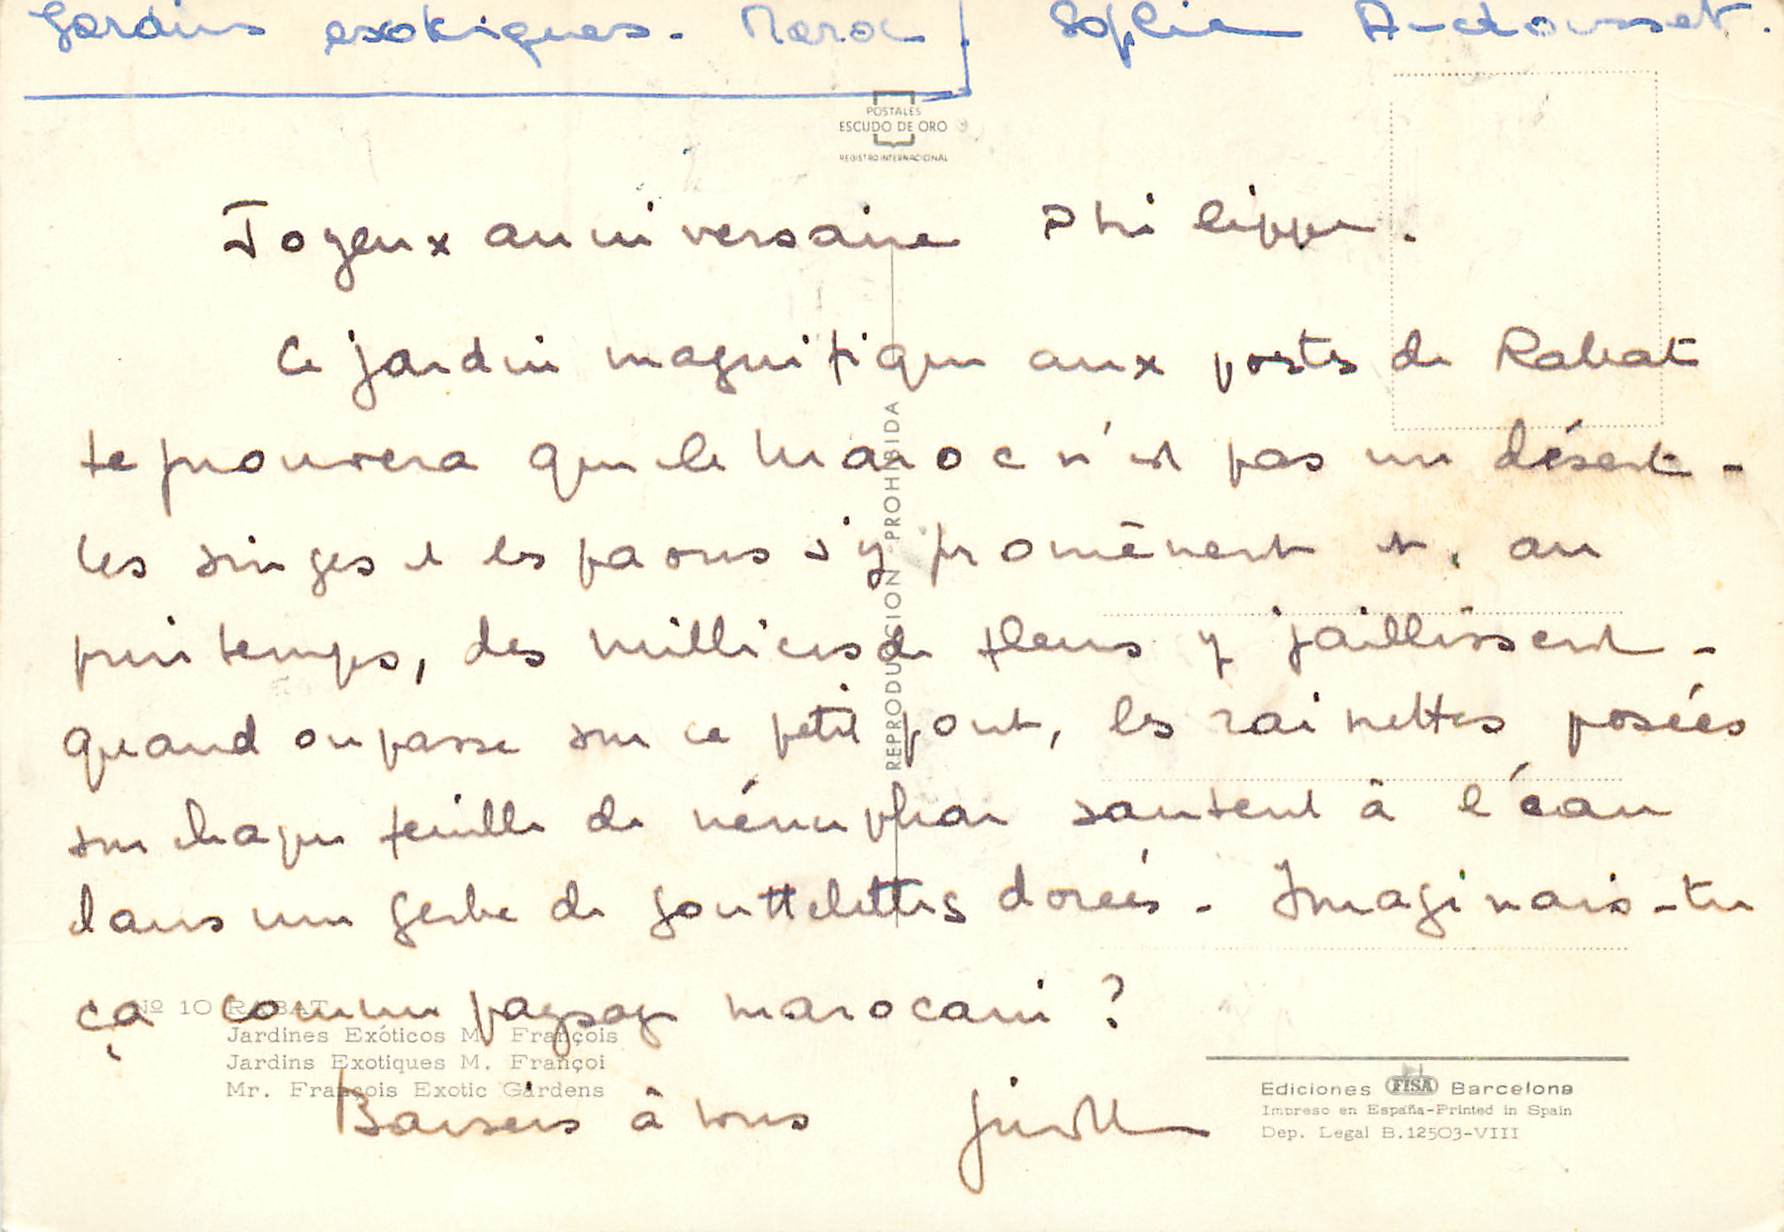 Jardins exotiques. Maroc Sophie Audousset.
POSTALES
ESCUDO DE ORO
REGISTRO INTERNACIONAL
Joyeux anniversaire Philippe.
Ce jardin magnifique aux portes de Rabat
te prouvera que le Maroc n'est pas un désert -
Les singes et les paons s'y promènent et, au
printemps, des milliers de fleurs y jaillissent -
quand on passe sur ce petit pont, les rainettes posées
sur chaque feuille de nénuphar sautent à l'eau
dans une gerbe de gouttelettes dorées - Imaginais-tu
ça comme paysage marocain ?
Baisers à tous
REPRODUCCION PROHIBIDA
Nº 10 RABAT
Jardines Exóticos M. François
Jardins Exotiques M. Françoi
Mr. François Exotic Gardens
Ediciones FISA Barcelona
Impreso en España-Printed in Spain
Dep. Legal B.12503-VIII